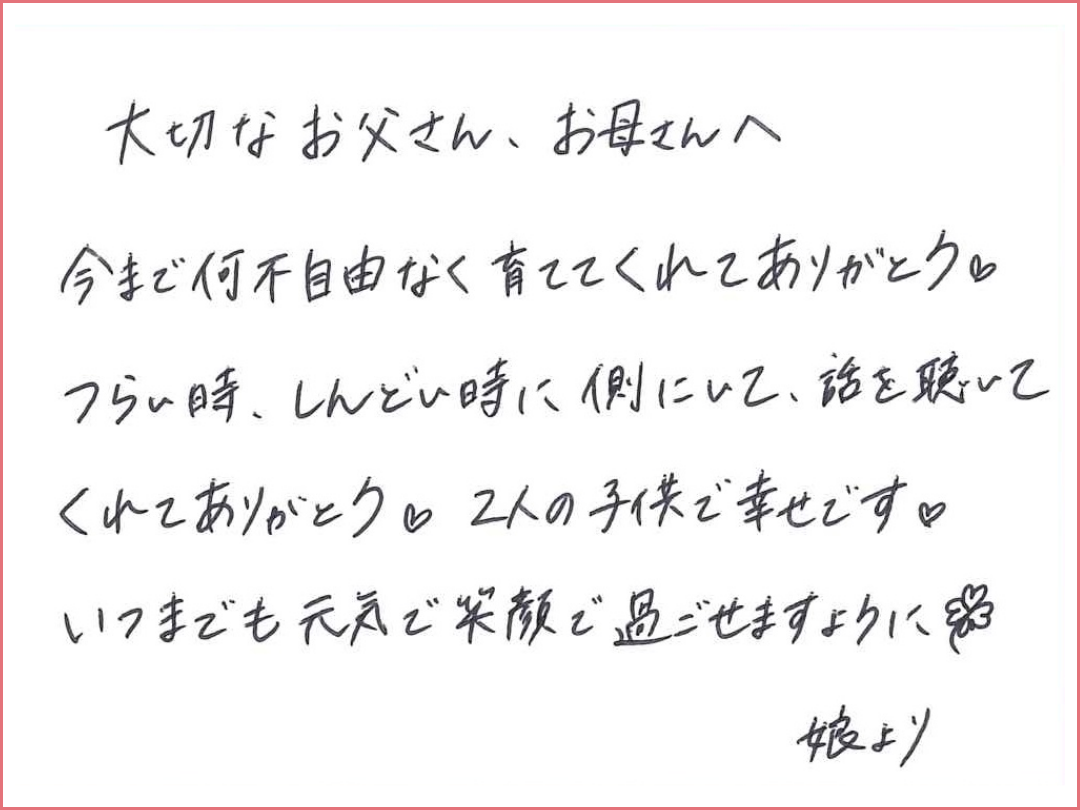 大切なお父さん、お母さんへ
今まで何不自由なく育ててくれてありがとう♡
つらい時、しんどい時に側にいて、話を聴いて
くれてありがとう♡ 2人の子供で幸せです♡
いつまでも元気で笑顔で過ごせますように
娘より